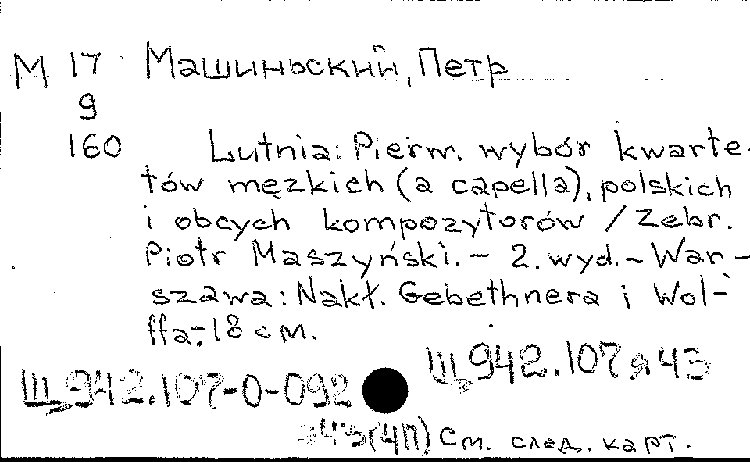 М 17 Машиньский, Петр
9
160 Lutnia: Pierw. wybór kwarte-
tów męzkich (a capella), polskich
i obcych kompozytorów / Zebr.
Piotr Maszyński. - 2. wyd. - War-
szawa: Nakł. Gebethnera i Wol-
ffa. - 18 см.
Щ942.107я43
Щ942.107-0-092
я43(4П) См. след. карт.